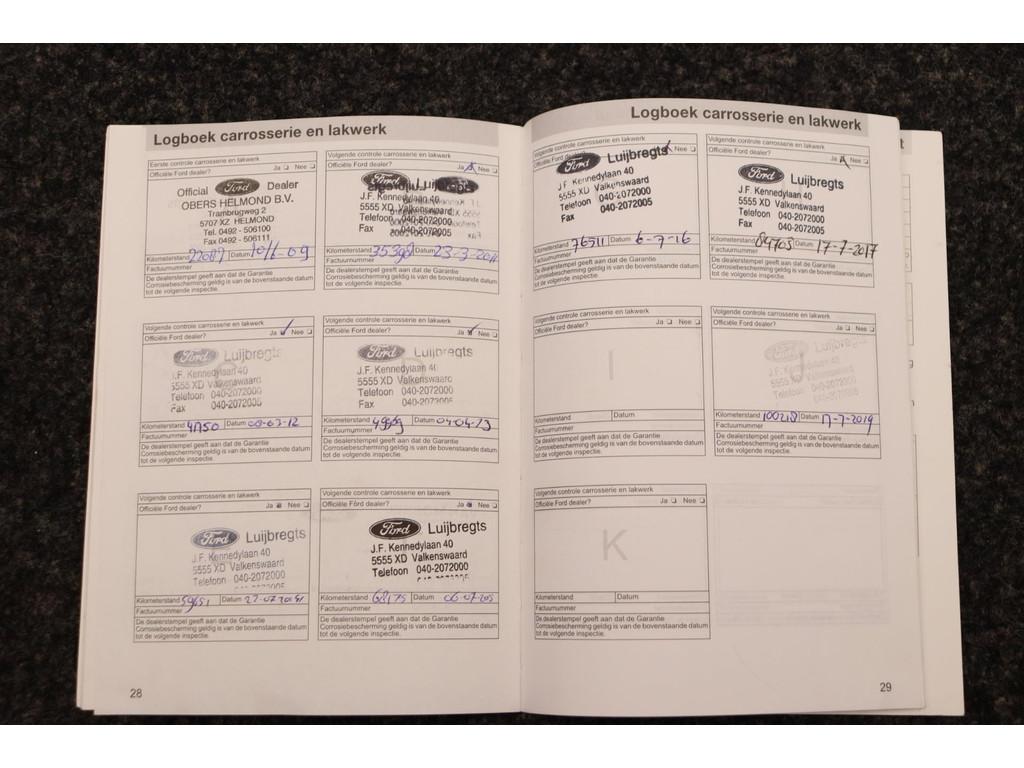 Logboek carrosserie en lakwerk
Eerste controle carrosserie en lakwerk
Officiële Ford dealer? Ja Nee
Official Ford Dealer
OBERS HELMOND B.V.
Trambrugweg 2
5707 XZ HELMOND
Tel. 0492 - 506100
Fax 0492 - 506111
Kilometerstand 22087 Datum
Factuurnummer
De dealerstempel geeft aan dat de Garantie
Corrosiebescherming geldig is van de bovenstaande datum
tot de volgende inspectie.
Volgende controle carrosserie en lakwerk
Officiële Ford dealer? Ja Nee
Ford
J.F. Kennedylaan 40
5555 XD Valkenswaard
Telefoon 040-2072000
Fax 040-2072005
Kilometerstand 35398 Datum
Factuurnummer
De dealerstempel geeft aan dat de Garantie
Corrosiebescherming geldig is van de bovenstaande datum
tot de volgende inspectie.
Volgende controle carrosserie en lakwerk
Officiële Ford dealer? Ja Nee
Ford Luijbregts
J.F. Kennedylaan 40
5555 XD Valkenswaard
Telefoon 040-2072000
Fax 040-2072005
Kilometerstand Datum
Factuurnummer
De dealerstempel geeft aan dat de Garantie
Corrosiebescherming geldig is van de bovenstaande datum
tot de volgende inspectie.
Volgende controle carrosserie en lakwerk
Officiële Ford dealer? Ja Nee
Ford Luijbregts
J.F. Kennedylaan 40
5555 XD Valkenswaard
Telefoon 040-2072000
Fax 040-2072005
Kilometerstand Datum 04-04-13
Factuurnummer
De dealerstempel geeft aan dat de Garantie
Corrosiebescherming geldig is van de bovenstaande datum
tot de volgende inspectie.
Volgende controle carrosserie en lakwerk
Officiële Ford dealer? Ja Nee
Ford Luijbregts
J.F. Kennedylaan 40
5555 XD Valkenswaard
Telefoon 040-2072000
Kilometerstand 59651 Datum
Factuurnummer
De dealerstempel geeft aan dat de Garantie
Corrosiebescherming geldig is van de bovenstaande datum
tot de volgende inspectie.
Volgende controle carrosserie en lakwerk
Officiële Ford dealer? Ja Nee
Ford Luijbregts
J.F. Kennedylaan 40
5555 XD Valkenswaard
Telefoon 040-2072000
Kilometerstand 68175 Datum
Factuurnummer
De dealerstempel geeft aan dat de Garantie
Corrosiebescherming geldig is van de bovenstaande datum
tot de volgende inspectie.
28
Logboek carrosserie en lakwerk
Volgende controle carrosserie en lakwerk
Officiële Ford dealer? Ja Nee
Ford Luijbregts
J.F. Kennedylaan 40
5555 XD Valkenswaard
Telefoon 040-2072000
Fax 040-2072005
Kilometerstand 76511 Datum 6-7-16
Factuurnummer
De dealerstempel geeft aan dat de Garantie
Corrosiebescherming geldig is van de bovenstaande datum
tot de volgende inspectie.
Volgende controle carrosserie en lakwerk
Officiële Ford dealer? Ja Nee
Ford Luijbregts
J.F. Kennedylaan 40
5555 XD Valkenswaard
Telefoon 040-2072000
Fax 040-2072005
Kilometerstand 84703 Datum 17-7-2017
Factuurnummer
De dealerstempel geeft aan dat de Garantie
Corrosiebescherming geldig is van de bovenstaande datum
tot de volgende inspectie.
Volgende controle carrosserie en lakwerk
Officiële Ford dealer? Ja Nee
I
Kilometerstand Datum
Factuurnummer
De dealerstempel geeft aan dat de Garantie
Corrosiebescherming geldig is van de bovenstaande datum
tot de volgende inspectie.
Volgende controle carrosserie en lakwerk
Officiële Ford dealer? Ja Nee
Ford Luijbregts
J.F. Kennedylaan 40
5555 XD Valkenswaard
Telefoon 040-2072000
Kilometerstand 100218 Datum 17-7-2019
Factuurnummer
De dealerstempel geeft aan dat de Garantie
Corrosiebescherming geldig is van de bovenstaande datum
tot de volgende inspectie.
Volgende controle carrosserie en lakwerk
Officiële Ford dealer? Ja Nee
K
Kilometerstand Datum
Factuurnummer
De dealerstempel geeft aan dat de Garantie
Corrosiebescherming geldig is van de bovenstaande datum
tot de volgende inspectie.
29